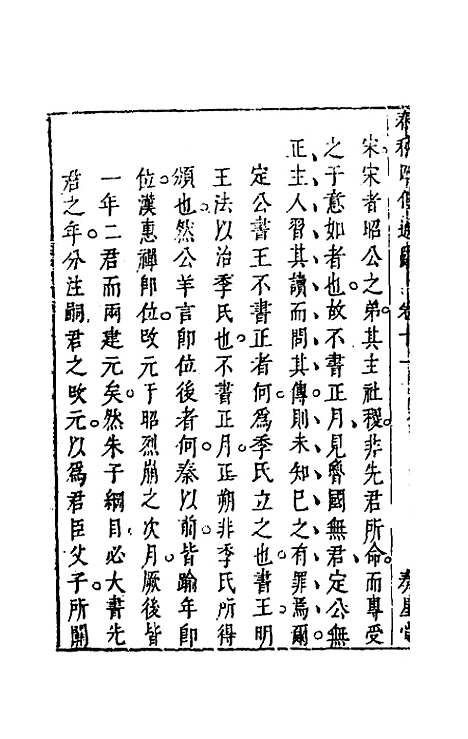 春秋階傳通
卷十一
春星堂
宋宋者昭公之弟其主社稷非先君所命而專受
之于意如者也故不書正月見魯國無君定公無
正主人習其讀而問其傳則未知已之有罪焉爾
定公書王不書正者何爲季氏立之也書王明
王法以治季氏也不書正月正朔非季氏所得
頒也然公羊言卽位後者何秦以前皆踰年卽
位漢惠禪卽位改元于昭烈崩之次月厥後皆
一年二君而兩建元矣然朱子綱目必大書先
君之年分注嗣君之改元以爲君臣父子所關